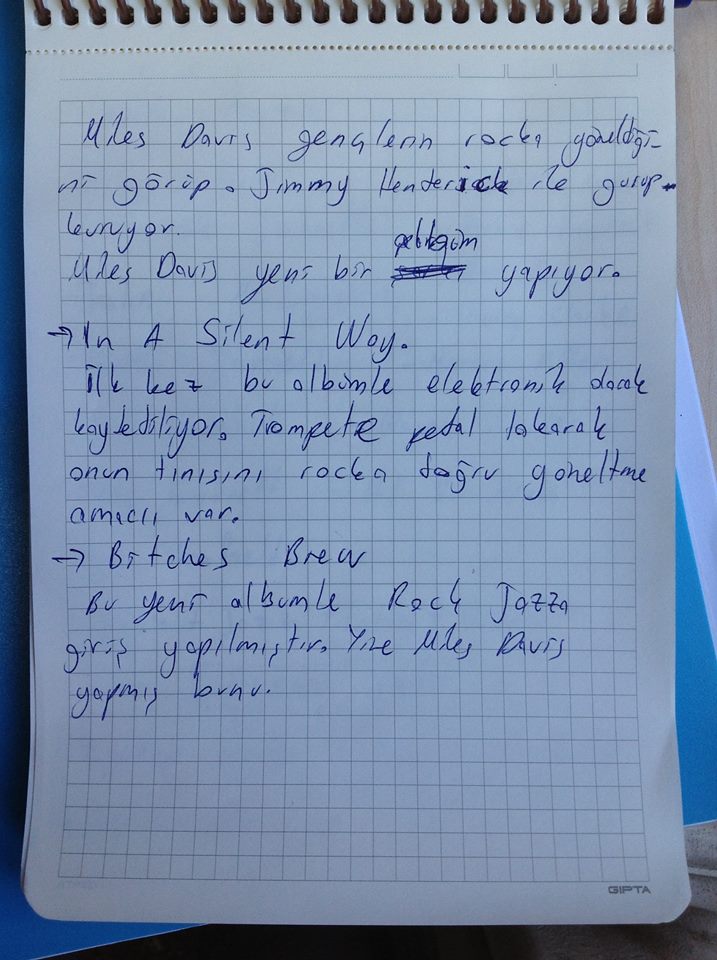 Miles Davis gençlerin rocka yöneldiği-
ni görüp. Jimmy Henderick ile gurup
kuruyor.
Miles Davis yeni bir yapıyor.
→ In A Silent Way.
İlk kez bu albümle elektronik olarak
kaydediliyor. Trompete petal takarak
onun tınısını rocka doğru yöneltme
amacı var.
→ Bitches Brew
Bu yeni albümle Rock Jazza
giriş yapılmıştır. Yine Miles Davis
yapmış bunu.
GIPTA